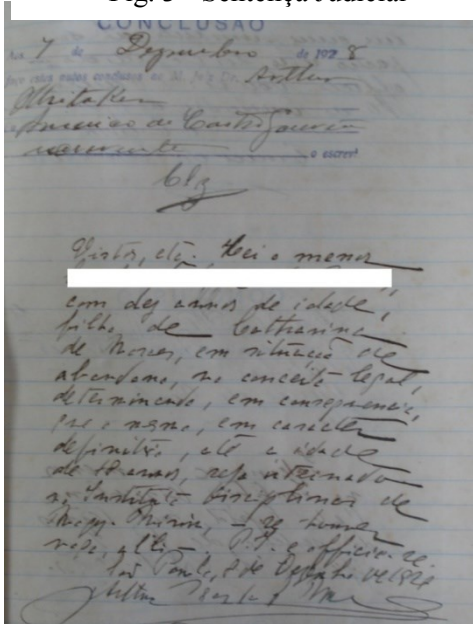 Fig. 3 – Sentença Judicial
CONCLUSÃO
7 de Dezembro de 1928
faço estes autos conclusos ao M. Juiz Dr. Arthur
Whitaker
de Castro
o escrevi
Clz
Vistos, etc. Hei o menor
com dez annos de idade,
filho de Catharina
de Moraes, em situação de
abandono, no conceito legal,
determinando, em consequencia,
que o mesmo, em caracter
definitivo, até a idade
de 18 annos, seja internado
no Instituto Disciplinar de
Mogy-Mirim, – se houver
vaga, alli –. P. I. e officie-se.
São Paulo, 8 de Dezembro de 1928